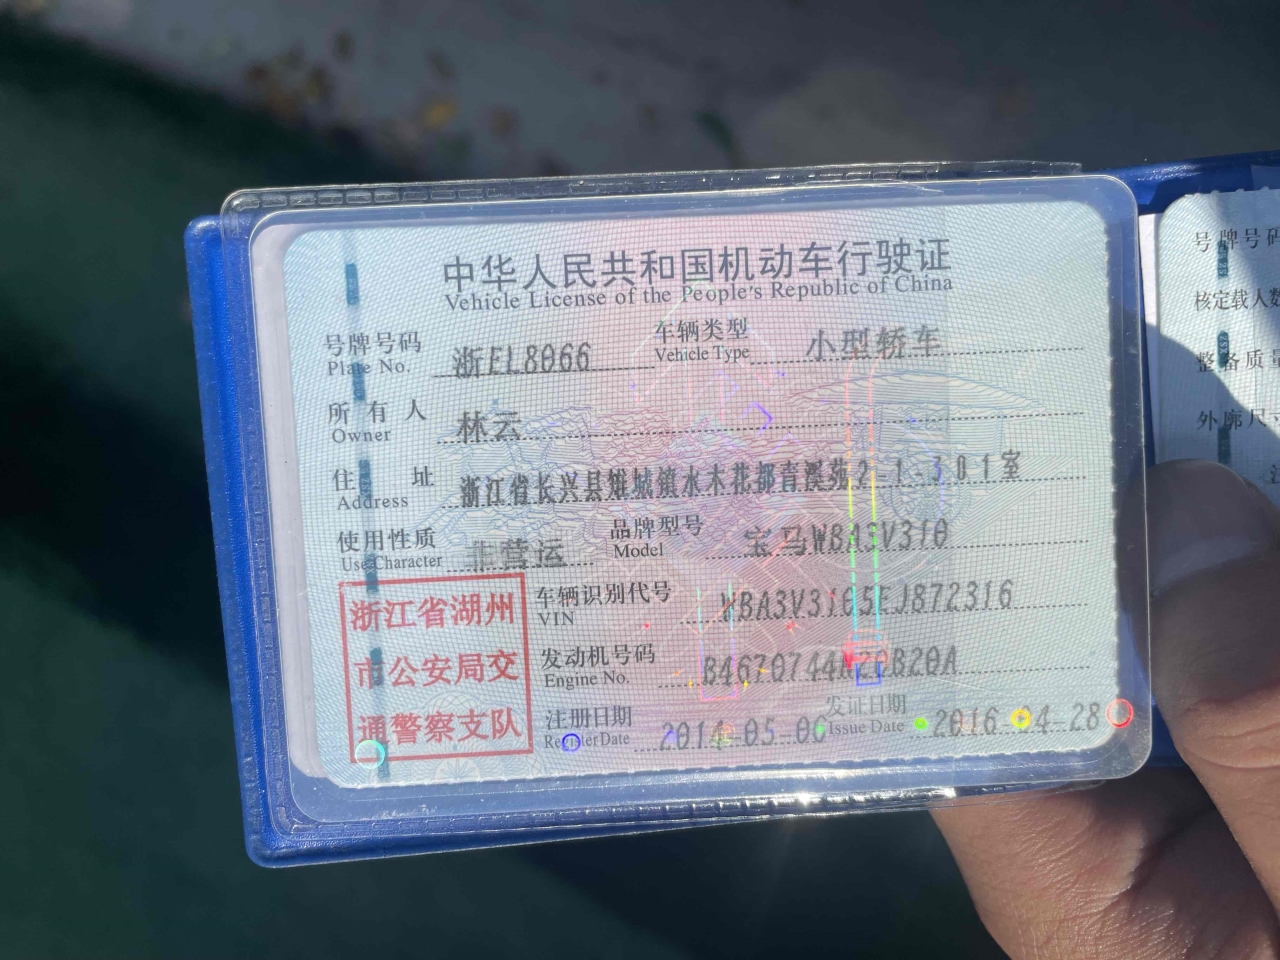 中华人民共和国机动车行驶证
Vehicle License of the People's Republic of China
号牌号码 浙EL8066 车辆类型 小型轿车
Plate No. Vehicle Type
所有人 林云
Owner
住址 浙江省长兴县雉城镇水木花都青溪苑2-1-301室
Address
使用性质 非营运 品牌型号 宝马WBA3V310
Use Character Model
浙江省湖州
市公安局交
通警察支队
车辆识别代号 WBA3V3105EJ872316
VIN
发动机号码 B4670744N20B20A
Engine No.
注册日期 2014-05-06 发证日期 2016-04-28
Register Date Issue Date
号牌号码
核定载人数
整备质量
外廓尺